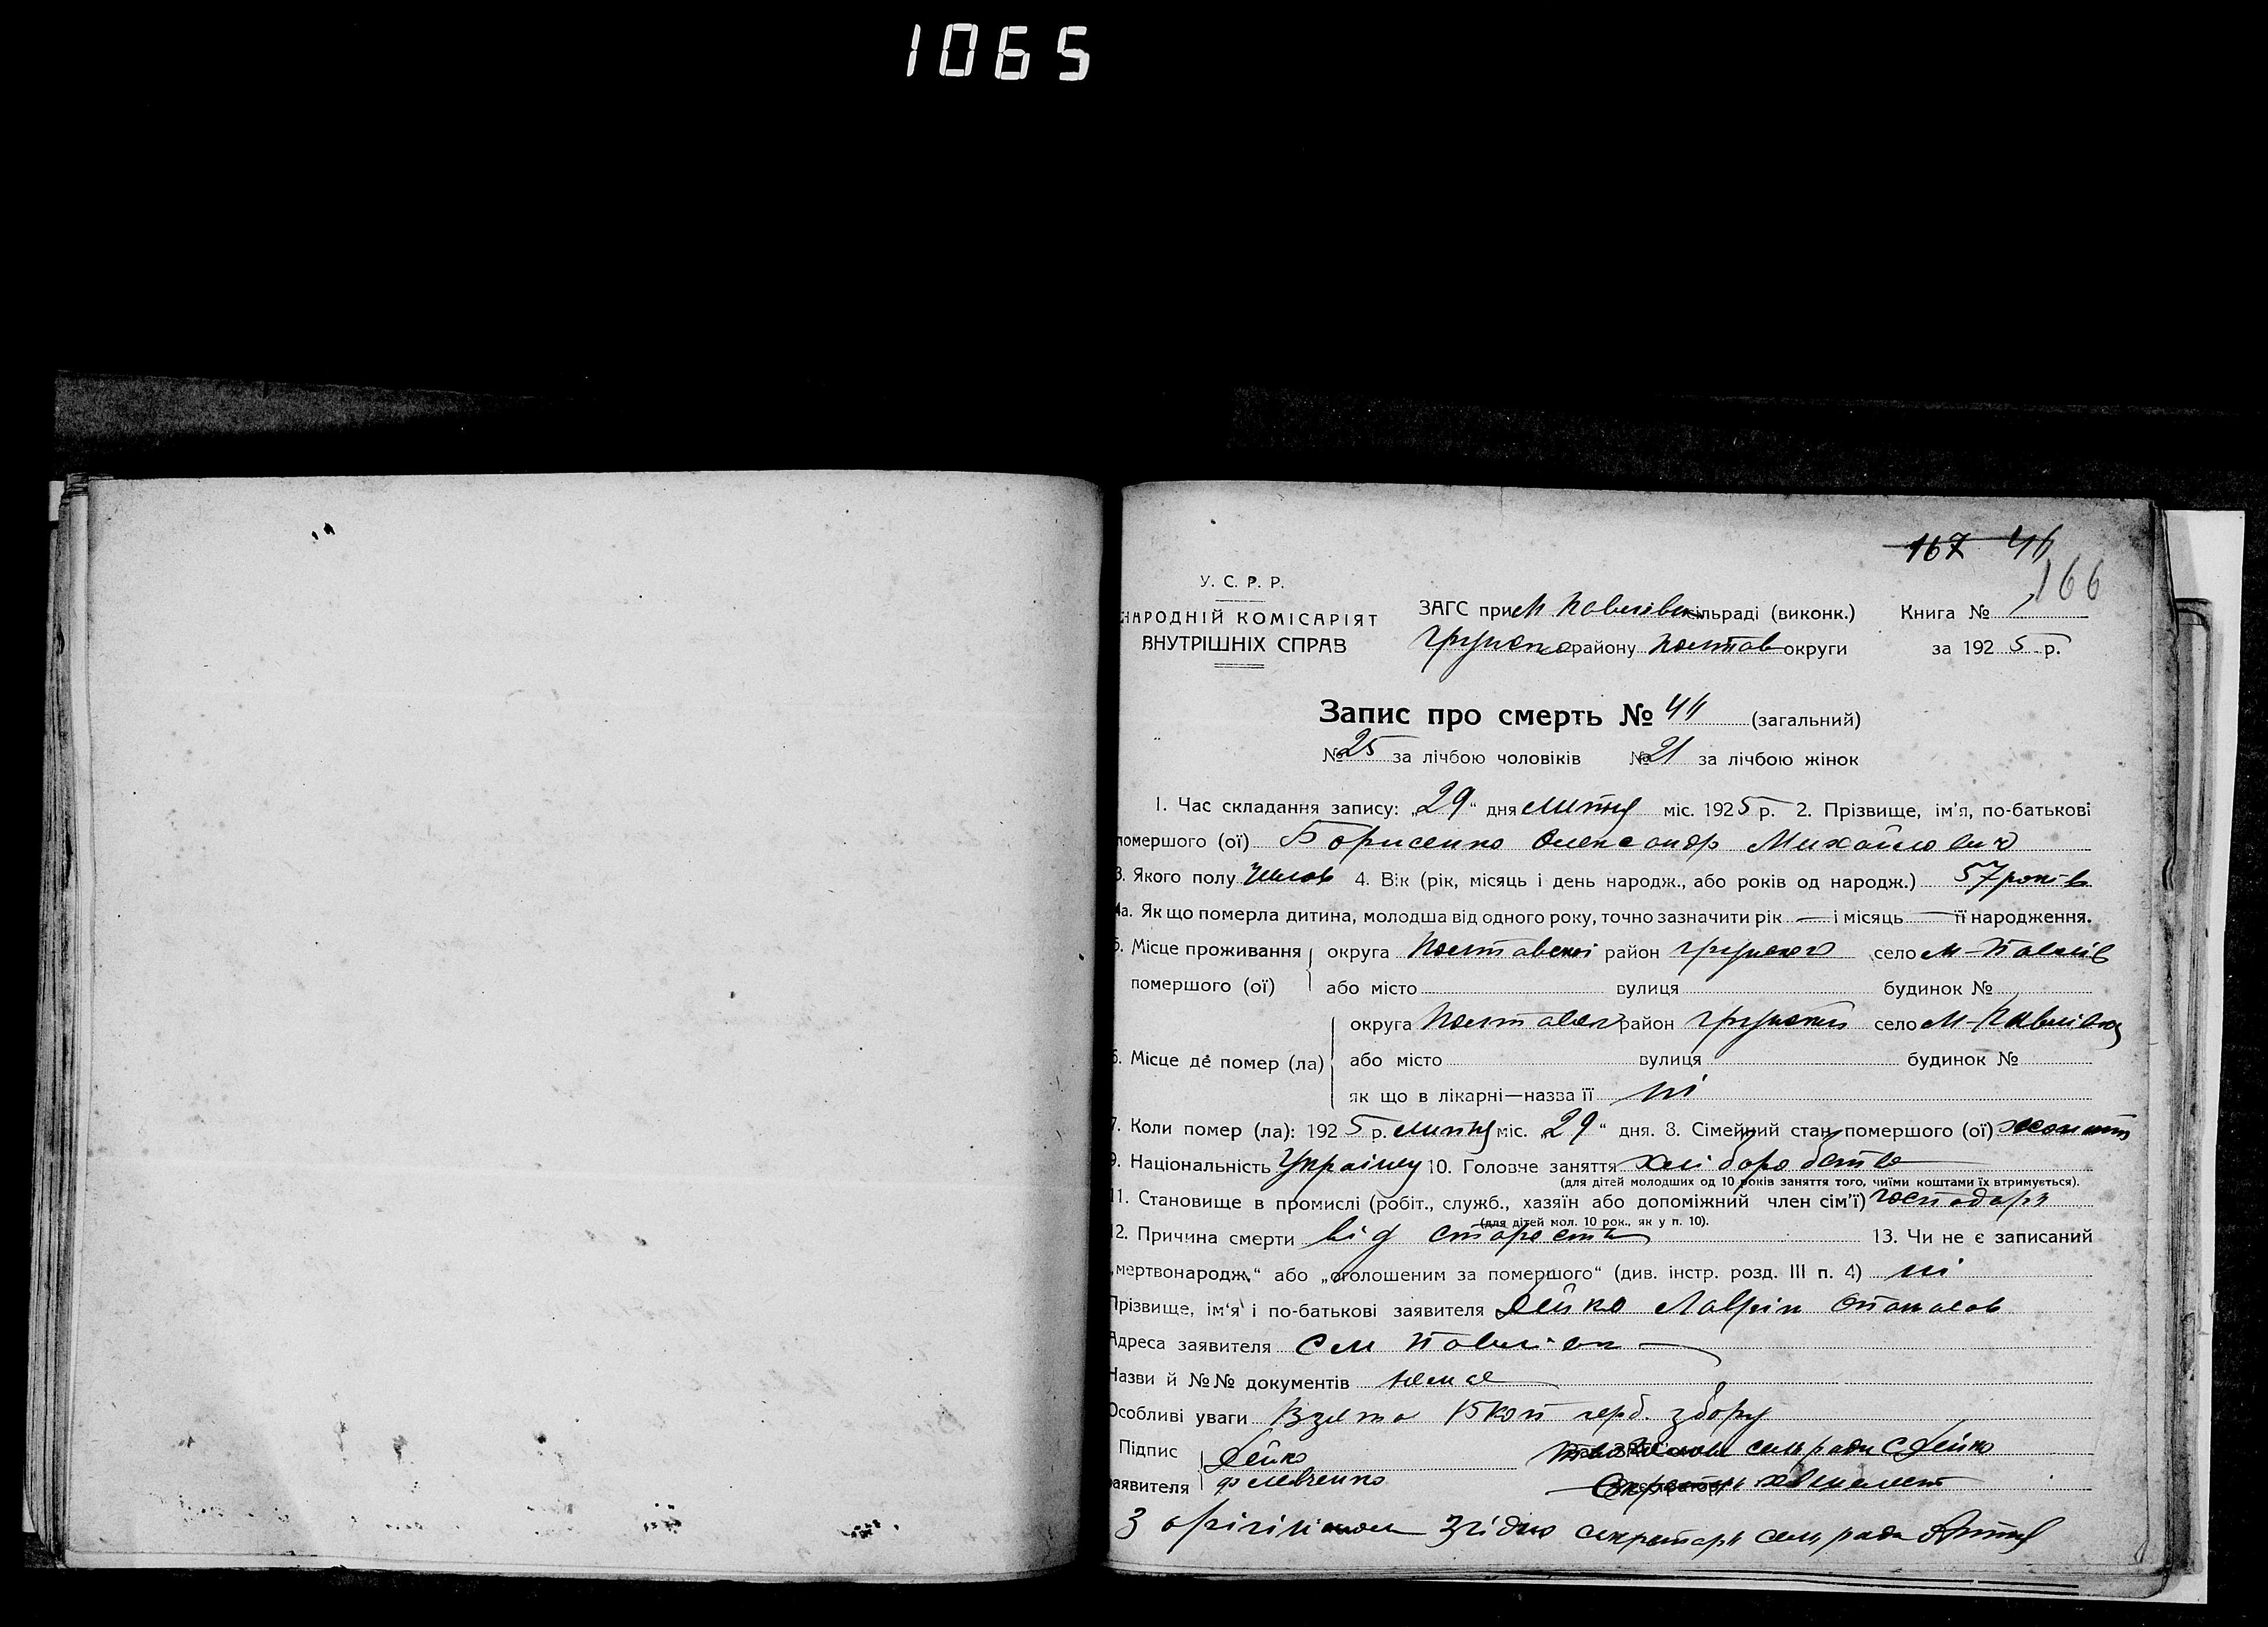 1065
167 46
166
У. С. Р. Р.
НАРОДНІЙ КОМІСАРІЯТ
ВНУТРІШНІХ СПРАВ
ЗАГС при М Павлівськ сільраді (виконк.) Книга № 1
Грунско району Полтав округи за 1925 р.
Запис про смерть № 46 (загальний)
№ 25 за лічбою чоловіків № 21 за лічбою жінок
1. Час складання запису: „29“ дня липня міс. 1925 р. 2. Прізвище, ім’я, по-батькові
помершого (ої) Борисенко Олександр Михайлович
3. Якого полу 4. Вік (рік, місяць і день народж., або років од народж.) 57 років
4а. Як що померла дитина, молодша від одного року, точно зазначити рік — і місяць — її народження.
5. Місце проживання округа Полтавської район Грунского село М-Павлів
помершого (ої) або місто вулиця будинок №
округа Полтавск район Грунский село М-Павлівка
6. Місце де помер (ла) або місто вулиця будинок №
як що в лікарні—назва її ні
7. Коли помер (ла): 1925 р. липня міс. „29“ дня. 8. Сімейний стан помершого (ої) жонат
9. Національність Українец 10. Головче заняття хліборобство
(для дітей молодших од 10 років заняття того, чиїми коштами їх втримується).
11. Становище в промислі (робіт., служб., хазяїн або допоміжний член сім’ї) господарь
(для дітей мол. 10 рок., як у п. 10).
12. Причина смерти від старости 13. Чи не є записаний
„мертвонародж.“ або „оголошеним за помершого“ (див. інстр. розд. III п. 4) ні
Прізвище, ім’я і по-батькові заявителя Дейко Лаврін Опанасов
Адреса заявителя С М Павлівка
Назви й №№ документів немає
Особливі уваги Взято 15 коп герб. збору
Підпис Дейко сельради С Дейко
заявителя Ф Левченко Секретарь
З орігіналом згідно секретарь сельради